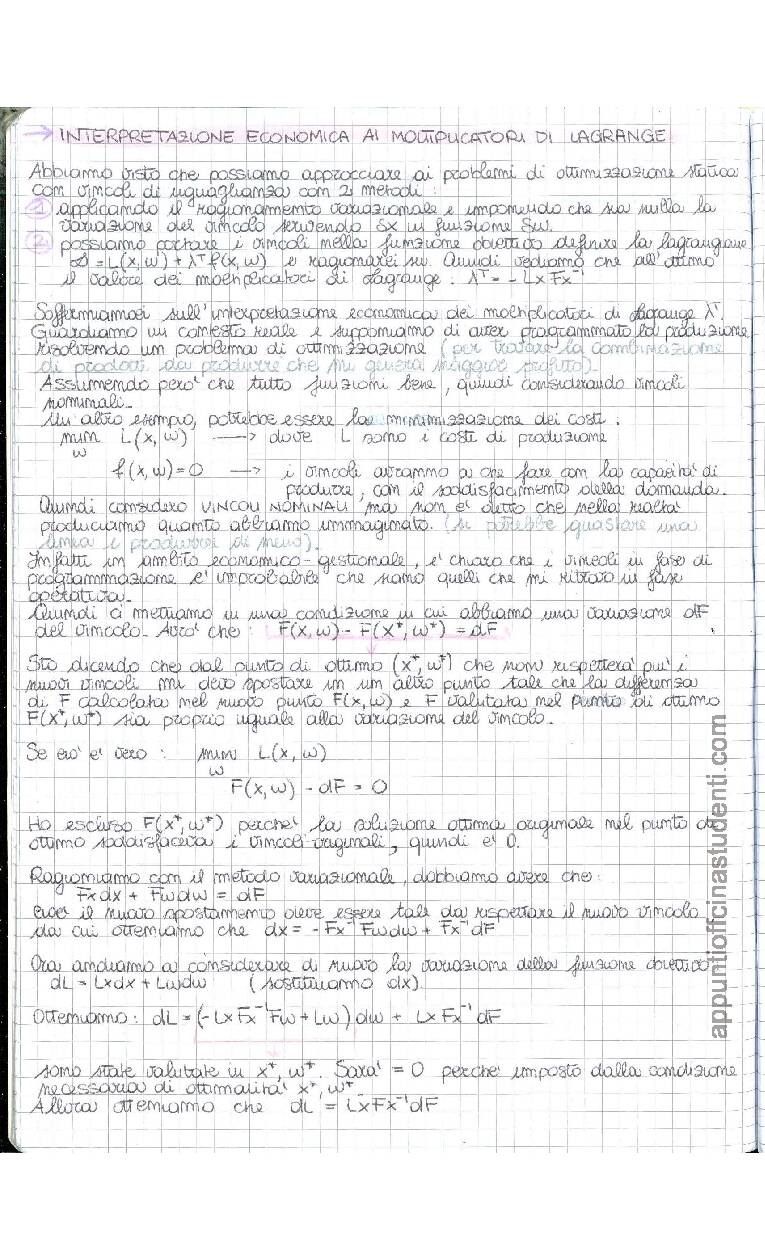 → INTERPRETAZIONE ECONOMICA AI MOLTIPLICATORI DI LAGRANGE
Abbiamo visto che possiamo approcciare ai problemi di ottimizzazione statica
con vincoli di uguaglianza con 2 metodi :
1 applicando il ragionamento variazionale e imponendo che sia nulla la
variazione del vincolo scrivendo δx in funzione δw.
2 possiamo portare i vincoli nella funzione obiettivo definire la lagrangiana
L = L(x,w) + λᵀ f(x,w) e ragionarci su. Quindi vediamo che all'ottimo
il valore dei moltiplicatori di Lagrange : λᵀ = - Lx Fx⁻¹
Soffermiamoci sull'interpretazione economica dei moltiplicatori di Lagrange λᵀ.
Guardiamo un contesto reale e supponiamo di aver programmato la produzione
risolvendo un problema di ottimizzazione (per trovare la combinazione
di prodotti da produrre che mi genera maggior profitto).
Assumendo però che tutto funzioni bene, quindi considerando vincoli
nominali.
Un altro esempio, potrebbe essere la minimizzazione dei costi :
min L(x,w) → dove L sono i costi di produzione
w
f(x,w)=0 → i vincoli avranno a che fare con la capacità di
produrre, con il soddisfacimento della domanda.
Quindi considero VINCOLI NOMINALI ma non è detto che nella realtà
produciamo quanto abbiamo immaginato. (si potrebbe guastare una
linea e produrrei di meno).
Infatti in ambito economico-gestionale, è chiaro che i vincoli in fase di
programmazione è improbabile che siano quelli che mi ritrovo in fase
operativa.
Quindi ci mettiamo in una condizione in cui abbiamo una variazione dF
del vincolo. Avrò che : F(x,w) - F(x*,w*) = dF
Sto dicendo che dal punto di ottimo (x*,w*) che non rispetterà più i
nuovi vincoli mi devo spostare in un altro punto tale che la differenza
di F calcolata nel nuovo punto F(x,w) e F valutata nel punto di ottimo
F(x*,w*) sia proprio uguale alla variazione del vincolo.
Se ciò è vero : min L(x,w)
w
F(x,w) - dF = 0
Ho escluso F(x*,w*) perché la soluzione ottima originale nel punto di
ottimo soddisfaceva i vincoli originali, quindi è 0.
Ragioniamo con il metodo variazionale, dobbiamo avere che:
Fx dx + Fw dw = dF
cioè il nuovo spostamento deve essere tale da rispettare il nuovo vincolo
da cui otteniamo che dx = - Fx⁻¹ Fw dw + Fx⁻¹ dF
Ora andiamo a considerare di nuovo la variazione della funzione obiettivo
dL = Lx dx + Lw dw (sostituiamo dx).
Otteniamo : dL = (- Lx Fx⁻¹ Fw + Lw) dw + Lx Fx⁻¹ dF
sono state valutate in x*, w*. Sarà = 0 perché imposto dalla condizione
necessaria di ottimalità x*, w*.
Allora otteniamo che dL = Lx Fx⁻¹ dF
appuntiofficinastudenti.com